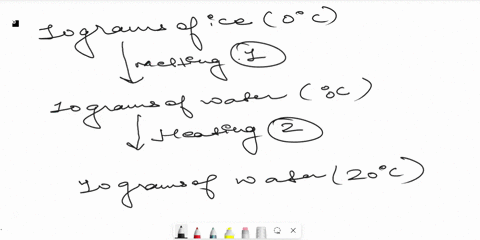 10 grams of ice (0°C)
Melting 1
10 grams of water (0°C)
Heating 2
10 grams of water (20°C)